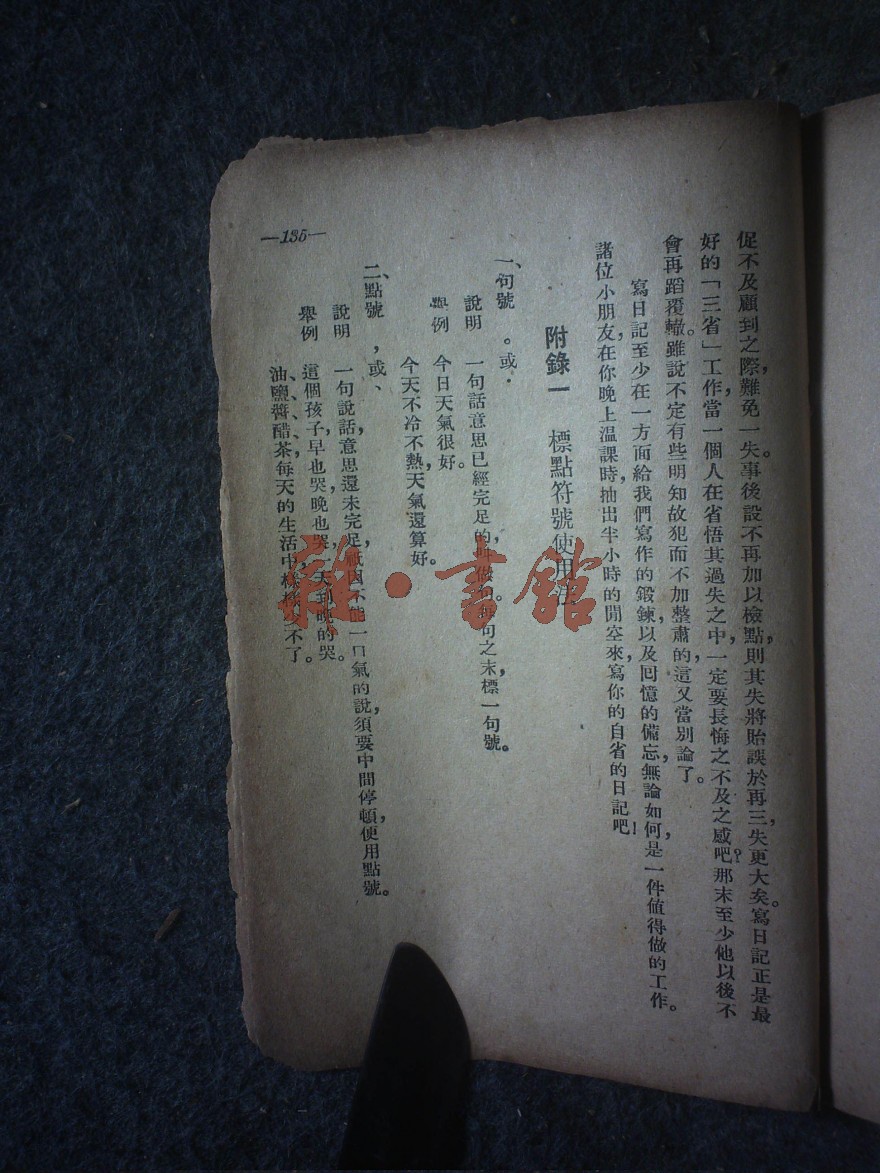 促不及顧到之際，難免一失。事後設不再加以檢點，則其失將貽誤於再三，失更大矣。寫日記正是最
好的「三省」工作，當一個人在省悟其過失之中，一定要長悔之不及之感吧？那末至少他以後不
會再蹈覆轍。雖說不定有些明知故犯而不加整肅的，這又當別論了。
寫日記至少在一方面給我們寫作的鍛鍊，以及回憶的備忘，無論如何，是一件值得做的工作。
諸位小朋友，在你晚上温課時，抽出半小時的閒空，來寫你的自省的日記吧！
附錄一　標點符號使用法
一、句號　。或．
說明　一句話意思已經完足的，叫做句。每句之末，標一句號。
舉例　今日天氣很好。
今天不冷不熱，天氣還算好。
二、點號　，或、
說明　一句說話，意思還未完足，祇因不能一口氣的說，須要中間停頓，便用點號。
舉例　這個孩子，早也哭，晚也哭，一天到晚的哭。
油、鹽、醬、醋、茶，每天的生活中，樣樣少不了。
—135—
雜·書館